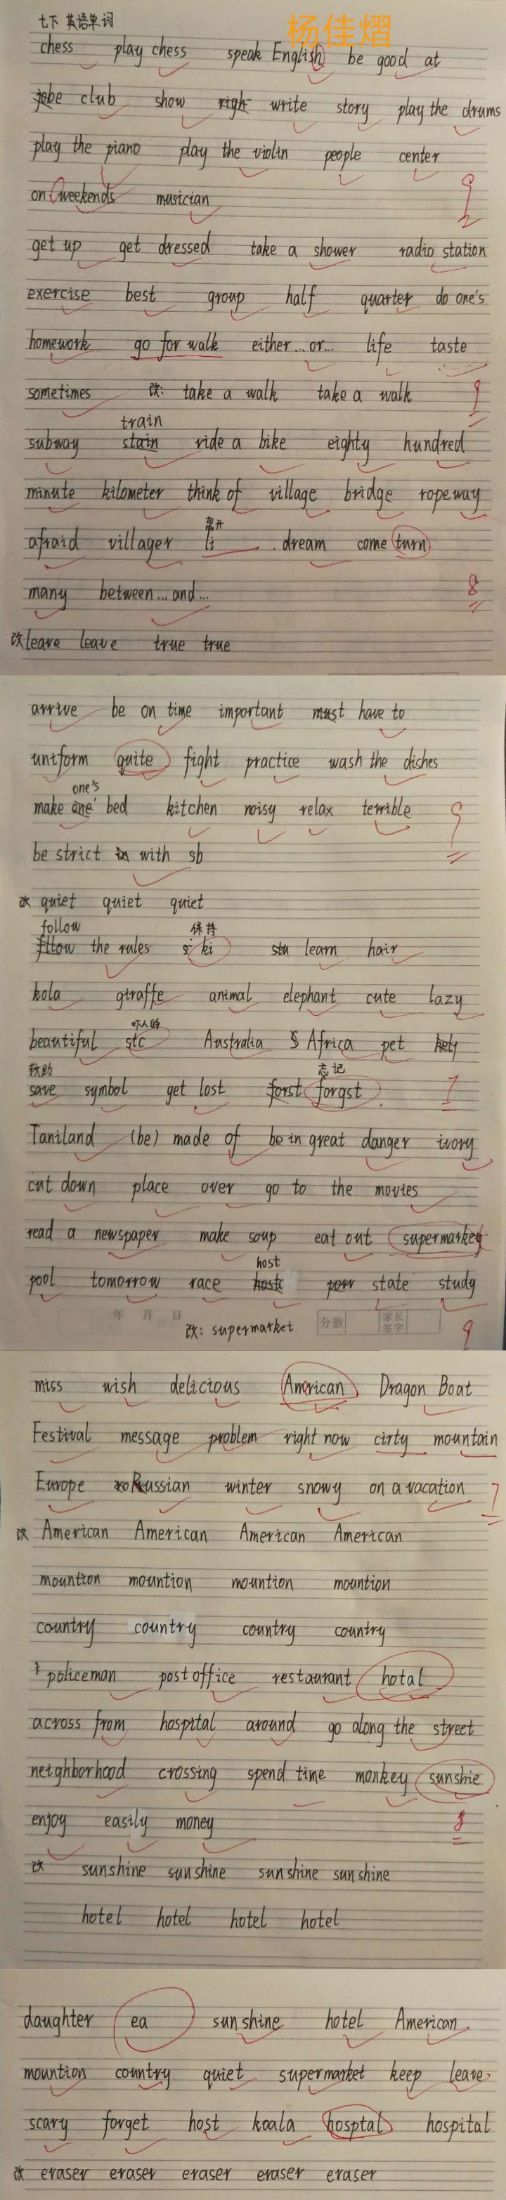 七下 英语单词 杨佳熠
chess play chess speak English be good at
be club show write story play the drums
play the piano play the violin people center
on weekends musician 92
get up get dressed take a shower radio station
exercise best group half quarter do one's
homework go for walk either...or... life taste
sometimes 改: take a walk take a walk 9
train
subway stain ride a bike eighty hundred
minute kilometer think of village bridge ropeway
离开
afraid villager li dream come turn
many between...and... 8
改 leave leave true true
arrive be on time important must have to
uniform quite fight practice wash the dishes
one's
make one' bed kitchen noisy relax terrible 9
be strict in with sb
改 quiet quiet quiet
follow 保持
fllow the rules s ki stu learn hair
kola giraffe animal elephant cute lazy
吓人的
beautiful stc Australia S Africa pet
救助 忘记
save symbol get lost forst forgst 7
Taniland (be) made of be in great danger ivory
cut down place over go to the movies
read a newspaper make soup eat out supermarkey
host
pool tomorrow race state study
年 月 日 改: supermarket 分数 家长签字 9
miss wish delicious American Dragon Boat
Festival message problem right now cirty mountain
Europe Russian winter snowy on a vacation 7
改 American American American American
mountion mountion mountion mountion
country country country country
policeman post office restaurant hotal
across from hospital around go along the street
neighborhood crossing spend time monkey sunshie
enjoy easily money 8
改 sunshine sunshine sunshine sunshine
hotel hotel hotel hotel
daughter ea sunshine hotel American
mountion country quiet supermarket keep leave
scary forget host koala hosptal hospital
改 eraser eraser eraser eraser eraser